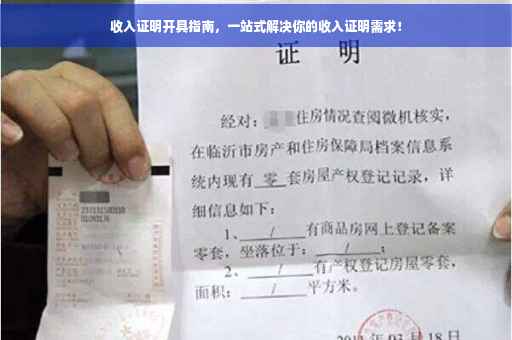 收入证明开具指南，一站式解决你的收入证明需求！
证 明
经对：住房情况查阅微机核实，
在临沂市房产和住房保障局档案信息系
统内现有 零 套房屋产权登记记录，详
细信息如下：
1、 / 有商品房网上登记备案
零套，坐落位于： / ；
2、 / 有产权登记房屋零套，
面积： / 平方米。
月 18 日